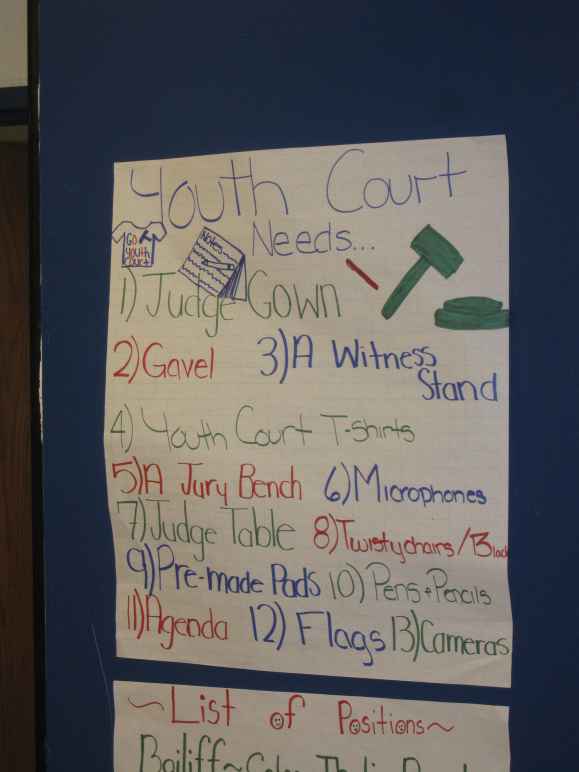 Youth Court
Needs...
Go
Youth
Court
Notes
1) Judge Gown
2) Gavel 3) A Witness
Stand
4) Youth Court T-Shirts
5) A Jury Bench 6) Microphones
7) Judge Table 8) Twistychairs/Black
9) Pre-made Pads 10) Pens + Pencils
11) Agenda 12) Flags 13) Cameras
~List of Positions~
Bailiff~